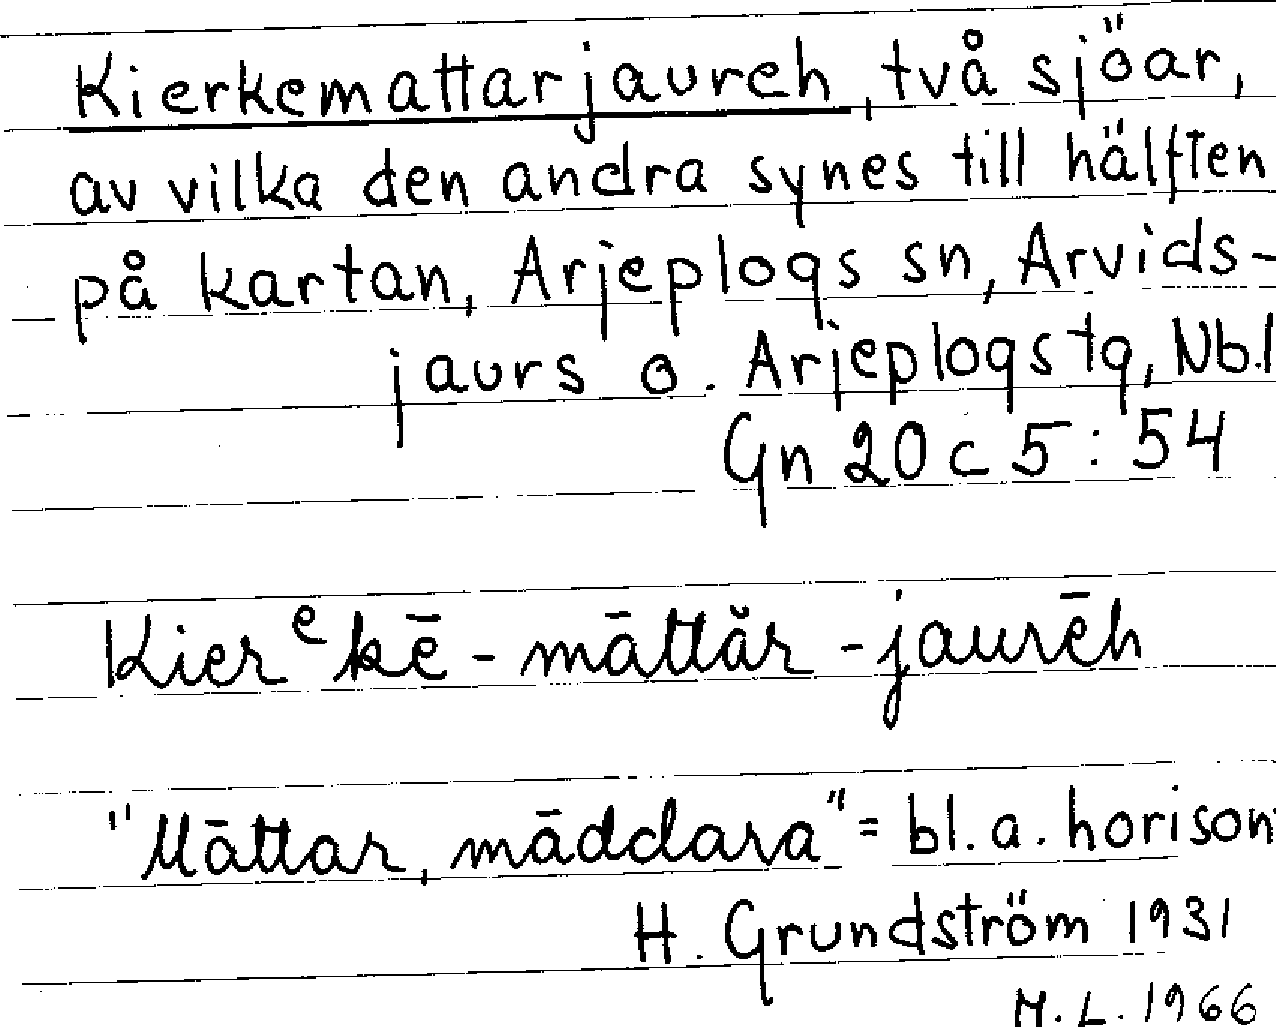 Kierkemattarjaureh, två sjöar,
av vilka den andra synes till hälften
på kartan, Arjeplogs sn, Arvids-
jaurs o. Arjeplogs tg, Nbl
Gn 20 c 5 : 54
Kierᵉkē - māttăr - jaurēh
"Māttar, māddara" = bl. a. horison
H. Grundström 1931
M. L. 1966